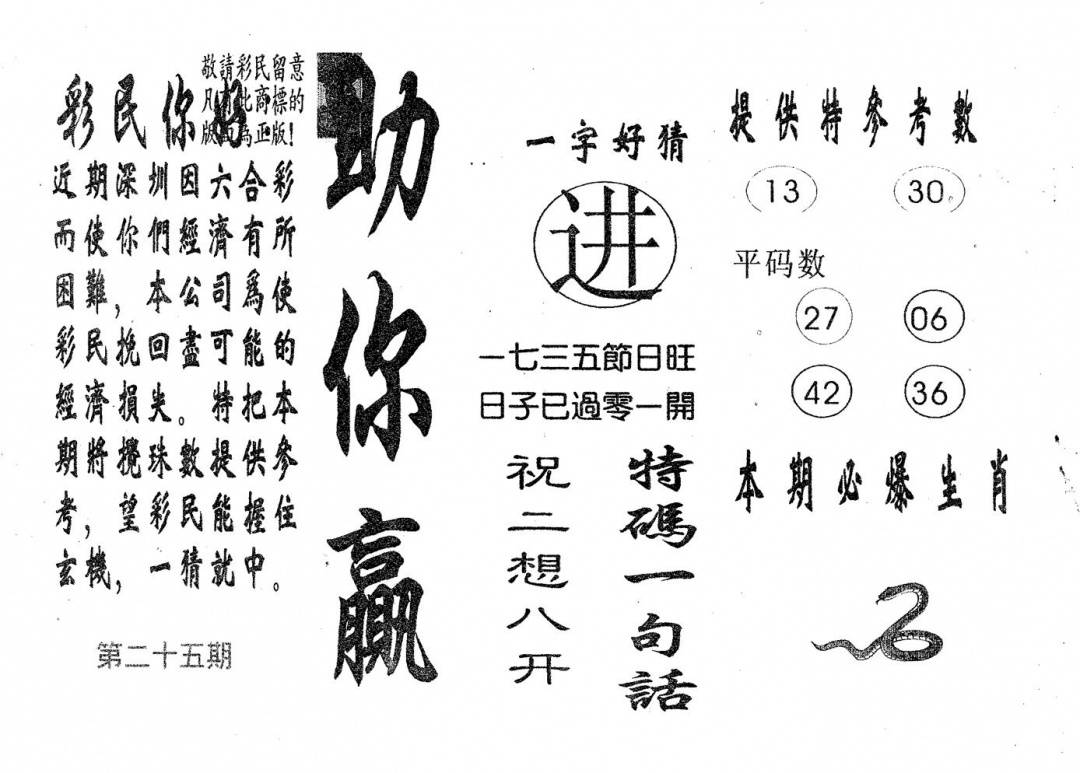 敬請彩民留意
凡有此商標的
版面為正版!
彩民你好
近期深圳因六合彩
而使你們經濟有所
困難，本公司爲使
彩民挽回盡可能的
經濟損失。特把本
期將攪珠數提供參
考，望彩民能握住
玄機，一猜就中。
第二十五期
助你贏
一字好猜
进
一七三五節日旺
日子已過零一開
特碼一句話
祝二想八开
提供特參考數
13 30
平码数
27 06
42 36
本期必爆生肖